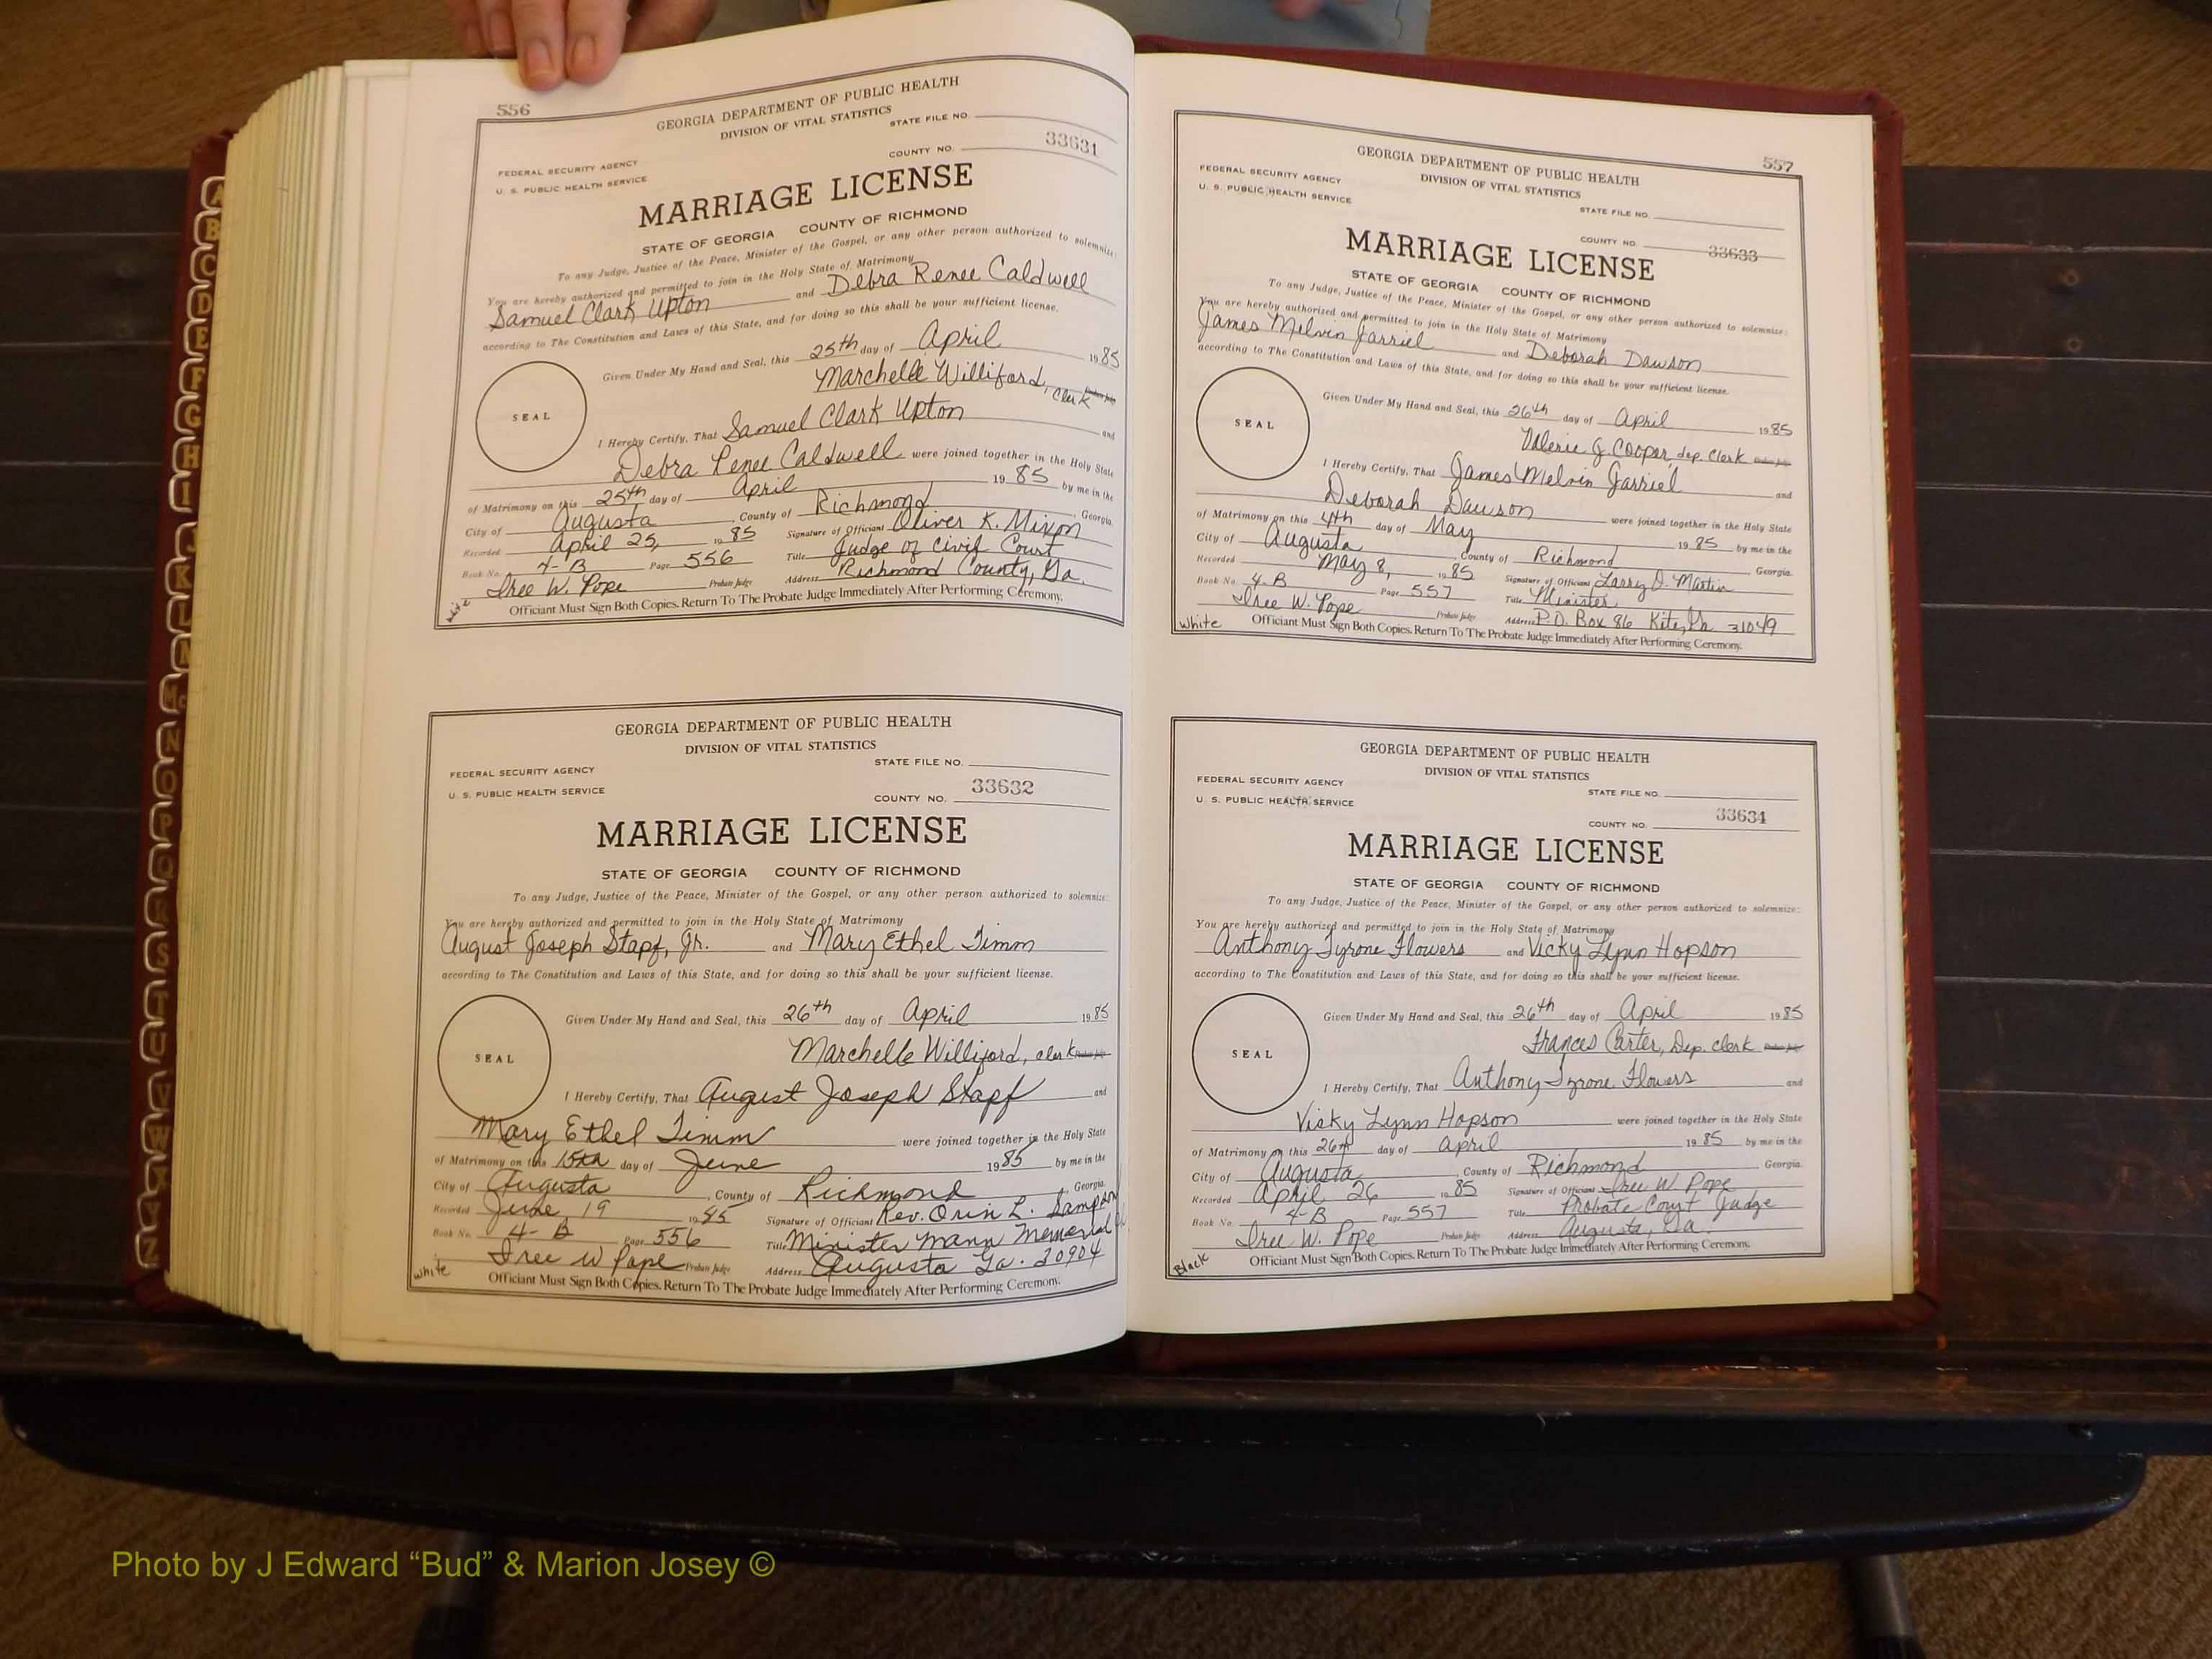 556
GEORGIA DEPARTMENT OF PUBLIC HEALTH
DIVISION OF VITAL STATISTICS
STATE FILE NO.
FEDERAL SECURITY AGENCY
U. S. PUBLIC HEALTH SERVICE
COUNTY NO. 33631
MARRIAGE LICENSE
STATE OF GEORGIA COUNTY OF RICHMOND
To any Judge, Justice of the Peace, Minister of the Gospel, or any other person authorized to solemnize:
You are hereby authorized and permitted to join in the Holy State of Matrimony
Samuel Clark Upton and Debra Renee Caldwell
according to The Constitution and Laws of this State, and for doing so this shall be your sufficient license.
Given Under My Hand and Seal, this 25th day of April 1985
Marchelle Williford, Clerk
SEAL
I Hereby Certify, That Samuel Clark Upton and
Debra Renee Caldwell were joined together in the Holy State
of Matrimony on this 25th day of April 1985 by me in the
City of Augusta, County of Richmond, Georgia.
Recorded April 25, 1985 Signature of Officiant Oliver K. Mixon
Book No. 4-B Page 556 Title Judge of Civil Court
Iree W. Pope Probate Judge Address Richmond County, Ga.
white Officiant Must Sign Both Copies. Return To The Probate Judge Immediately After Performing Ceremony.
GEORGIA DEPARTMENT OF PUBLIC HEALTH
DIVISION OF VITAL STATISTICS
STATE FILE NO.
FEDERAL SECURITY AGENCY
U. S. PUBLIC HEALTH SERVICE
COUNTY NO. 33632
MARRIAGE LICENSE
STATE OF GEORGIA COUNTY OF RICHMOND
To any Judge, Justice of the Peace, Minister of the Gospel, or any other person authorized to solemnize:
You are hereby authorized and permitted to join in the Holy State of Matrimony
August Joseph Stapf, Jr. and Mary Ethel Timm
according to The Constitution and Laws of this State, and for doing so this shall be your sufficient license.
Given Under My Hand and Seal, this 26th day of April 1985
Marchelle Williford, clerk
SEAL
I Hereby Certify, That August Joseph Stapf and
Mary Ethel Timm were joined together in the Holy State
of Matrimony on this 15th day of June 1985 by me in the
City of Augusta, County of Richmond, Georgia.
Recorded June, 19 1985 Signature of Officiant Rev. Orin L. Sampson
Book No. 4-B Page 556 Title Minister Mann Memorial
Iree W Pope Probate Judge Address Augusta Ga. 30904
white Officiant Must Sign Both Copies. Return To The Probate Judge Immediately After Performing Ceremony.
557
GEORGIA DEPARTMENT OF PUBLIC HEALTH
DIVISION OF VITAL STATISTICS
FEDERAL SECURITY AGENCY
U. S. PUBLIC HEALTH SERVICE
STATE FILE NO.
COUNTY NO. 33633
MARRIAGE LICENSE
STATE OF GEORGIA COUNTY OF RICHMOND
To any Judge, Justice of the Peace, Minister of the Gospel, or any other person authorized to solemnize:
You are hereby authorized and permitted to join in the Holy State of Matrimony
James Melvin Jarriel and Deborah Dawson
according to The Constitution and Laws of this State, and for doing so this shall be your sufficient license.
Given Under My Hand and Seal, this 26th day of April 1985
Valerie J. Cooper, dep. Clerk
SEAL
I Hereby Certify, That James Melvin Jarriel and
Deborah Dawson were joined together in the Holy State
of Matrimony on this 4th day of May 1985 by me in the
City of Augusta, County of Richmond Georgia.
Recorded May 8, 1985 Signature of Officiant Larry D. Martin
Book No. 4-B Page 557 Title Minister
Iree W. Pope Probate Judge Address P.O. Box 86 Kite, Ga 31049
White Officiant Must Sign Both Copies. Return To The Probate Judge Immediately After Performing Ceremony.
GEORGIA DEPARTMENT OF PUBLIC HEALTH
DIVISION OF VITAL STATISTICS
FEDERAL SECURITY AGENCY
U. S. PUBLIC HEALTH SERVICE
STATE FILE NO.
COUNTY NO. 33634
MARRIAGE LICENSE
STATE OF GEORGIA COUNTY OF RICHMOND
To any Judge, Justice of the Peace, Minister of the Gospel, or any other person authorized to solemnize:
You are hereby authorized and permitted to join in the Holy State of Matrimony
Anthony Tyrone Flowers and Vicky Lynn Hopson
according to The Constitution and Laws of this State, and for doing so this shall be your sufficient license.
Given Under My Hand and Seal, this 26th day of April 1985
Frances Carter, Dep. clerk
SEAL
I Hereby Certify, That Anthony Tyrone Flowers and
Vicky Lynn Hopson were joined together in the Holy State
of Matrimony on this 26th day of April 1985 by me in the
City of Augusta, County of Richmond Georgia.
Recorded April 26 1985 Signature of Officiant Iree W Pope
Book No. 4-B Page 557 Title Probate Court Judge
Iree W. Pope Probate Judge Address Augusta, Ga.
Black Officiant Must Sign Both Copies. Return To The Probate Judge Immediately After Performing Ceremony.
Photo by J Edward “Bud” & Marion Josey ©